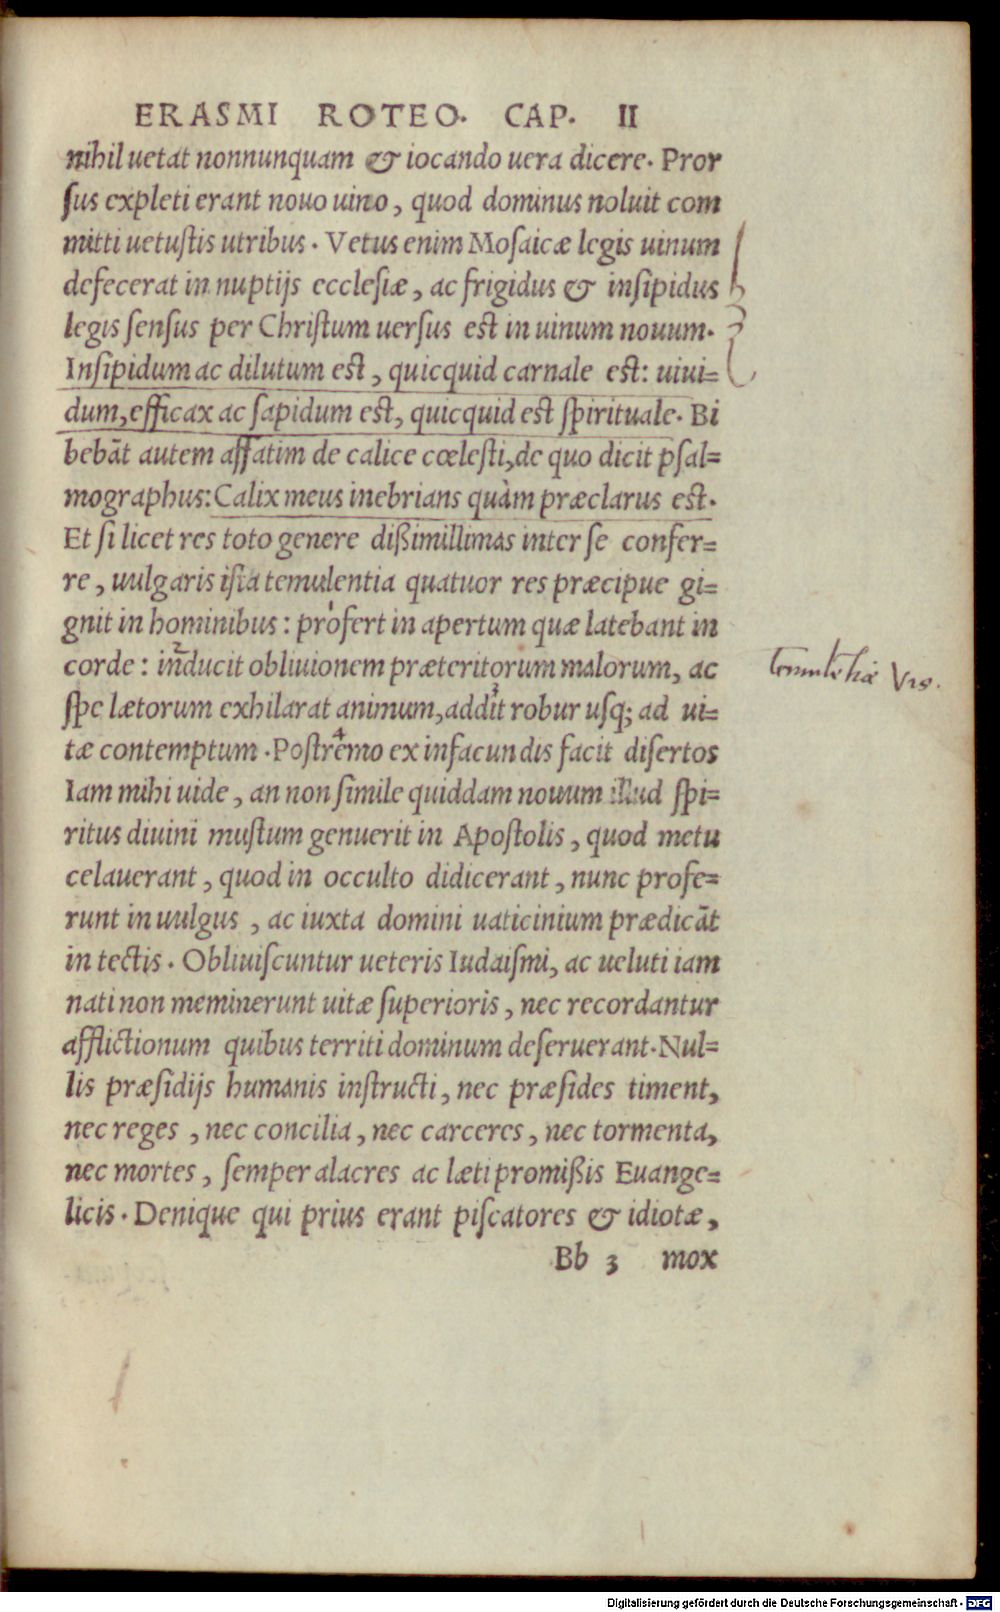 ERASMI ROTEO. CAP. II
nihil uetat nonnunquam & iocando uera dicere. Pror
ſus expleti erant nouo uino, quod dominus noluit com
mitti uetuſtis utribus. Vetus enim Moſaicæ legis uinum
defecerat in nuptijs eccleſiæ, ac frigidus & inſipidus
legis ſenſus per Chriſtum uerſus eſt in uinum nouum.
Inſipidum ac dilutum eſt, quicquid carnale eſt: uiui=
dum, efficax ac ſapidum eſt, quicquid eſt ſpirituale. Bi
bebāt autem affatim de calice cœleſti, de quo dicit pſal=
mographus: Calix meus inebrians quàm præclarus eſt.
Et ſi licet res toto genere dißimillimas inter ſe confer=
re, uulgaris iſta temulentia quatuor res præcipue gi=
gnit in hominibus: profert in apertum quæ latebant in
corde: inducit obliuionem præteritorum malorum, ac
ſpe lætorum exhilarat animum, addit robur uſq; ad ui=
tæ contemptum. Poſtremo ex infacundis facit diſertos
Iam mihi uide, an non ſimile quiddam nouum illud ſpi=
ritus diuini muſtum genuerit in Apoſtolis, quod metu
celauerant, quod in occulto didicerant, nunc profe=
runt in uulgus, ac iuxta domini uaticinium prædicāt
in tectis. Obliuiſcuntur ueteris Iudaiſmi, ac ueluti iam
nati non meminerunt uitæ ſuperioris, nec recordantur
afflictionum quibus territi dominum deſeruerant. Nul=
lis præſidijs humanis inſtructi, nec præſides timent,
nec reges, nec concilia, nec carceres, nec tormenta,
nec mortes, ſemper alacres ac læti promißis Euange=
licis. Denique qui prius erant piſcatores & idiotæ,
Bb 3 mox
Temulētiæ Vis.
1
2
3
4
Digitalisierung gefördert durch die Deutsche Forschungsgemeinschaft - DFG